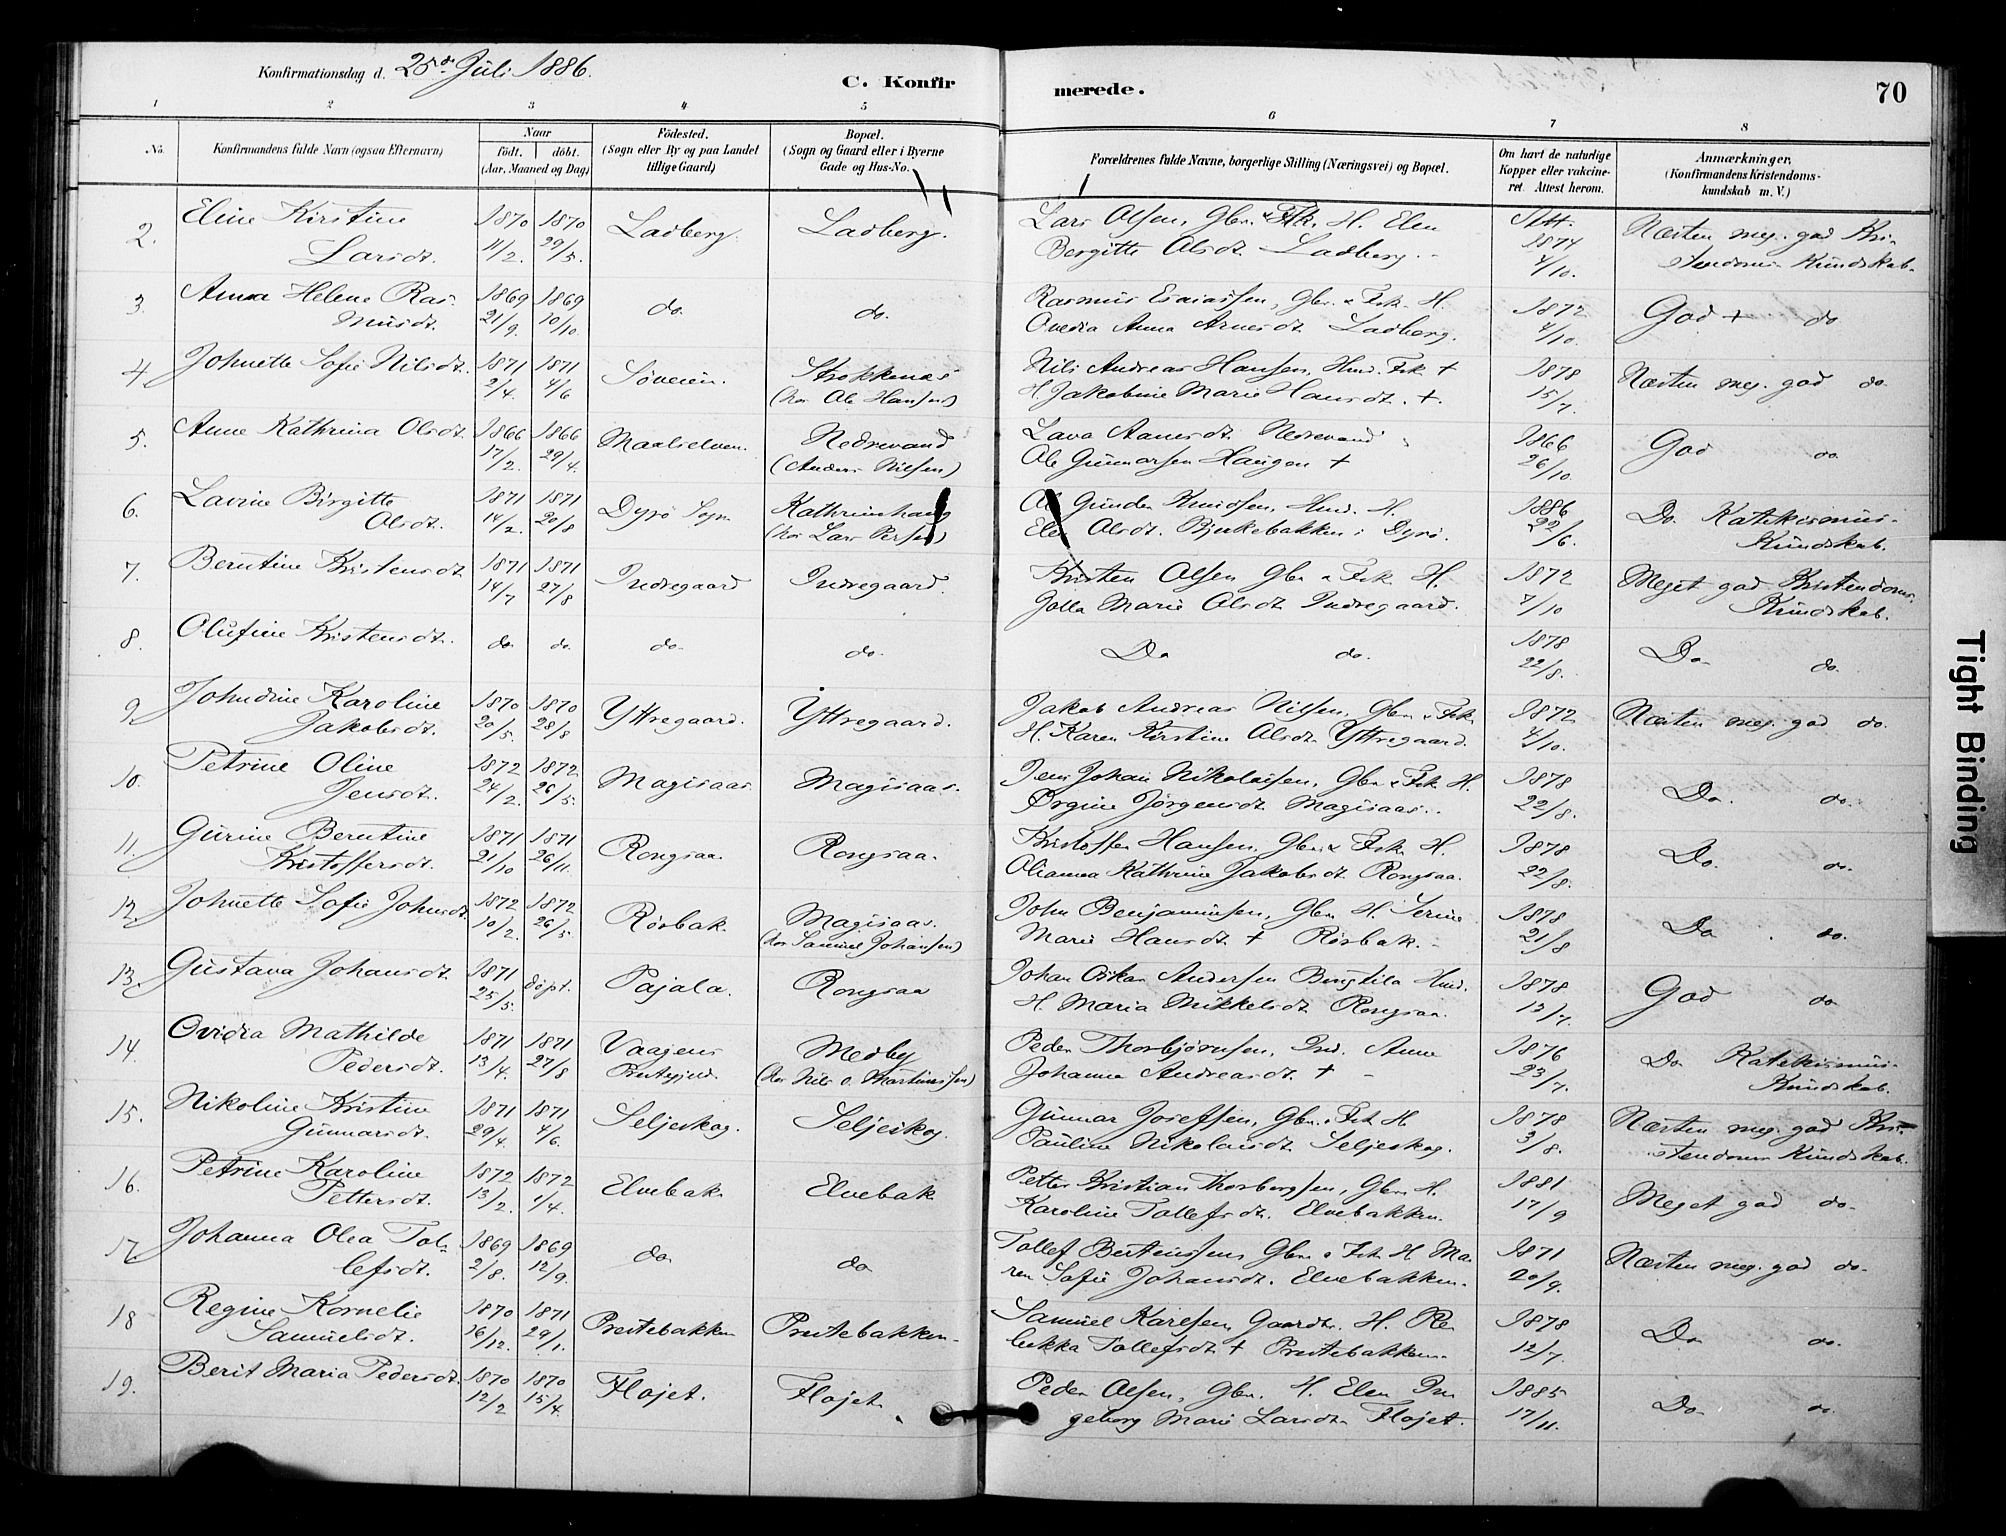 Konfirmationsdag d. 25de Juli 1886.
C. Konfirmerede.
70
1 2 3 4 5 6 7 8
No.
Konfirmandens fulde Navn (ogsaa Efternavn)
Naar
født. døbt.
(Aar, Maaned og Dag)
Fødested.
(Sogn eller By og paa Landet
tillige Gaard)
Bopæl.
(Sogn og Gaard eller i Byerne
Gade og Hus-No.
Forældrenes fulde Navne, borgerlige Stilling (Næringsvei) og Bopæl.
Om havt de naturlige
Kopper eller vakcine-
ret. Attest herom.
Anmærkninger.
(Konfirmandens Kristendoms-
kundskab m. V.)
2. Eline Kirstine 1870 1870 Ladberg. Ladberg. Lars Olsen, Gbr. & Fsk. H. Elen Attt. 1874 Næsten meg. god Kri-
Larsdt. 11/2. 29/5. Bergitte Olsdt. Ladberg. 4/10. stendoms Kundskab.
3. Anna Helene Ras- 1869 1869 do. do. Rasmus Esaiassen, Gbr. & Fsk. H. 1872 God + do
musdt. 21/9. 10/10. Ovedia Anna Arnesdt. Ladberg. 4/10.
4 Johnette Sofie Nilsdt. 1871 1871 Søveien. Strokkenæs Nils Andreas Hansen, Hmd. Fsk + 1878 Næsten meg. god do.
2/4. 4/6 (hos Ole Hansen) H. Jakobine Marie Hansdt. +. 15/7.
5. Anne Kathrina Olsdt. 1866 1866 Maalselven. Nedrevand Lava Aanesdt. Nedrevand 1866 God do.
17/2. 29/4. (Anders Nilsen) Ole Gunnarsen Haugen + 26/10.
6. Lavine Birgitte 1871 1871 Dyrø Sogn Kathrinehaug Ole Gunder Knudsen, Hmd. H. 1886 Do. Katekismus-
Olsdt. 14/2. 20/8 (hos Lars Persen) Elen Olsdt. Bjrkebakken i Dyrø. 22/6. Kundskab.
7. Berntine Kristensdt 1871 1871 Indregaard Indregaard. Kristen Olsen Gbr & Fsk H. 1872 Meget god Kristendoms-
14/7 27/8 Jolla Marie Olsdt. Indregaard. 7/10 Kundskab.
8. Olufine Kristensdt. do do. do. do. Do do. 1878 Do do.
22/8.
9. Johndine Karoline 1870 1870 Yttregaard. Yttregaard. Jakob Andreas Nilsen, Gbr & Fsk 1872 Næsten meg. god do.
Jakobsdt. 20/5. 28/8 H. Karen Kirstine Olsdt. Yttregaard. 4/10.
10. Petrine Oline 1872 1872 Magisaas. Magisaas. Jens Johan Nikolaisen, Gbr & Fsk H. 1878 Do. do.
Jensdt. 24/2. 26/5. Ørgine Jørgensdt Magisaas. 22/8.
11. Gurine Berntine 1871 1871 Rongsaa. Rongsaa. Kristoffer Hansen, Gbr. & Fsk H. 1878 Do do.
Kristoffersdt. 21/10 26/11. Olianna Kathrine Jakobsdt Rongsaa. 22/8.
12. Johnette Sofie Johnsdt. 1872 1872 Rørbak. Magisaas. John Benjaminsen, Gbr H. Serine 1878 Do do.
10/2. 26/5. (hos Samuel Johansen) Marie Hansdt + Rørbak. 21/8
13. Gustava Johansdt. 1871 døpt. Pajala. Rongsaa Johan Oskar Andersen Bengtila Hmd. 1878 God do
25/5. H. Maria Mikkelsdt Rongsaa. 13/7.
14. Ovidia Mathilde 1871 1871 Vaagens Medby Peder Thorbjørnsen, Ind. Anne 1876 Do Katekismus-
Pedersdt. 13/4. 27/8 Prestegjeld. (hos Nils O. Martinussen) Johanna Andreasdt. + 23/7. Kundskab.
15. Nikoline Kristine 1871 1871 Seljeskog. Seljeskog. Gunnar Josefsen, Gbr. & Fsk H. 1878 Næsten meg. god Kri-
Gunnarsdt. 29/4. 4/6. Pauline Nikolaisdt. Seljeskog. 3/8. stendoms Kundskab.
16. Petrine Karoline 1872 1872 Elvebak Elvebak Petter Kristian Thorbergsen, Gbr H. 1881 Meget god do.
Pettersdt. 13/2. 1/4. Karoline Tollefsdt. Elvebakken. 17/9
17. Johanna Olea Tol- 1869 1869 do do Tollef Berteussen, Gbr & Fsk H Ma- 1871 Næsten meg. god do.
lefsdt. 2/8. 12/9. ren Sofie Johansdt. Elvebakken. 20/9.
18 Regine Kornelie 1870 1871 Prestebakken Prestebakken. Samuel Karlsen, Gaardbr. H. Re- 1878 Do do.
Samuelsdt. 16/12. 29/1. bekka Tollefsdt + Prestebakken. 12/7.
19. Berit Maria Pedersdt. 1870 1870 Fløjet. Fløjet Peder Olsen, Gbr. H. Elen In- 1885 Do do.
12/2 15/4. geborg Marie Larsdt. Fløjet. 17/11.
Tight Binding